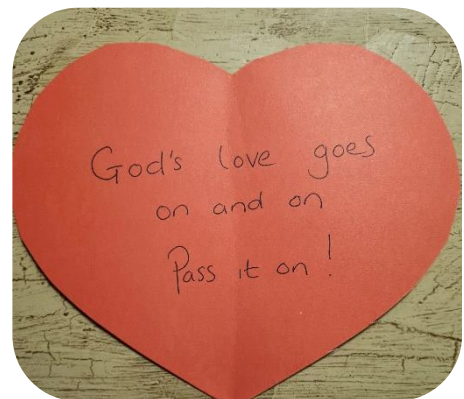 God's love goes
on and on
Pass it on !